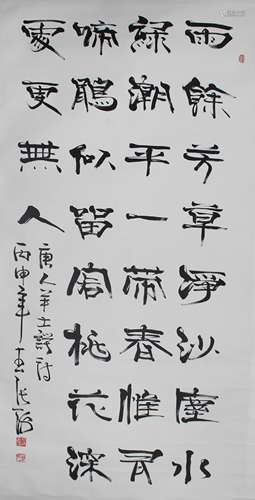 雨餘芳草淨沙塵水
綠潮平一帶春惟有
啼鵑似留客桃花深
處更無人
唐人羊士諤詩
丙申年